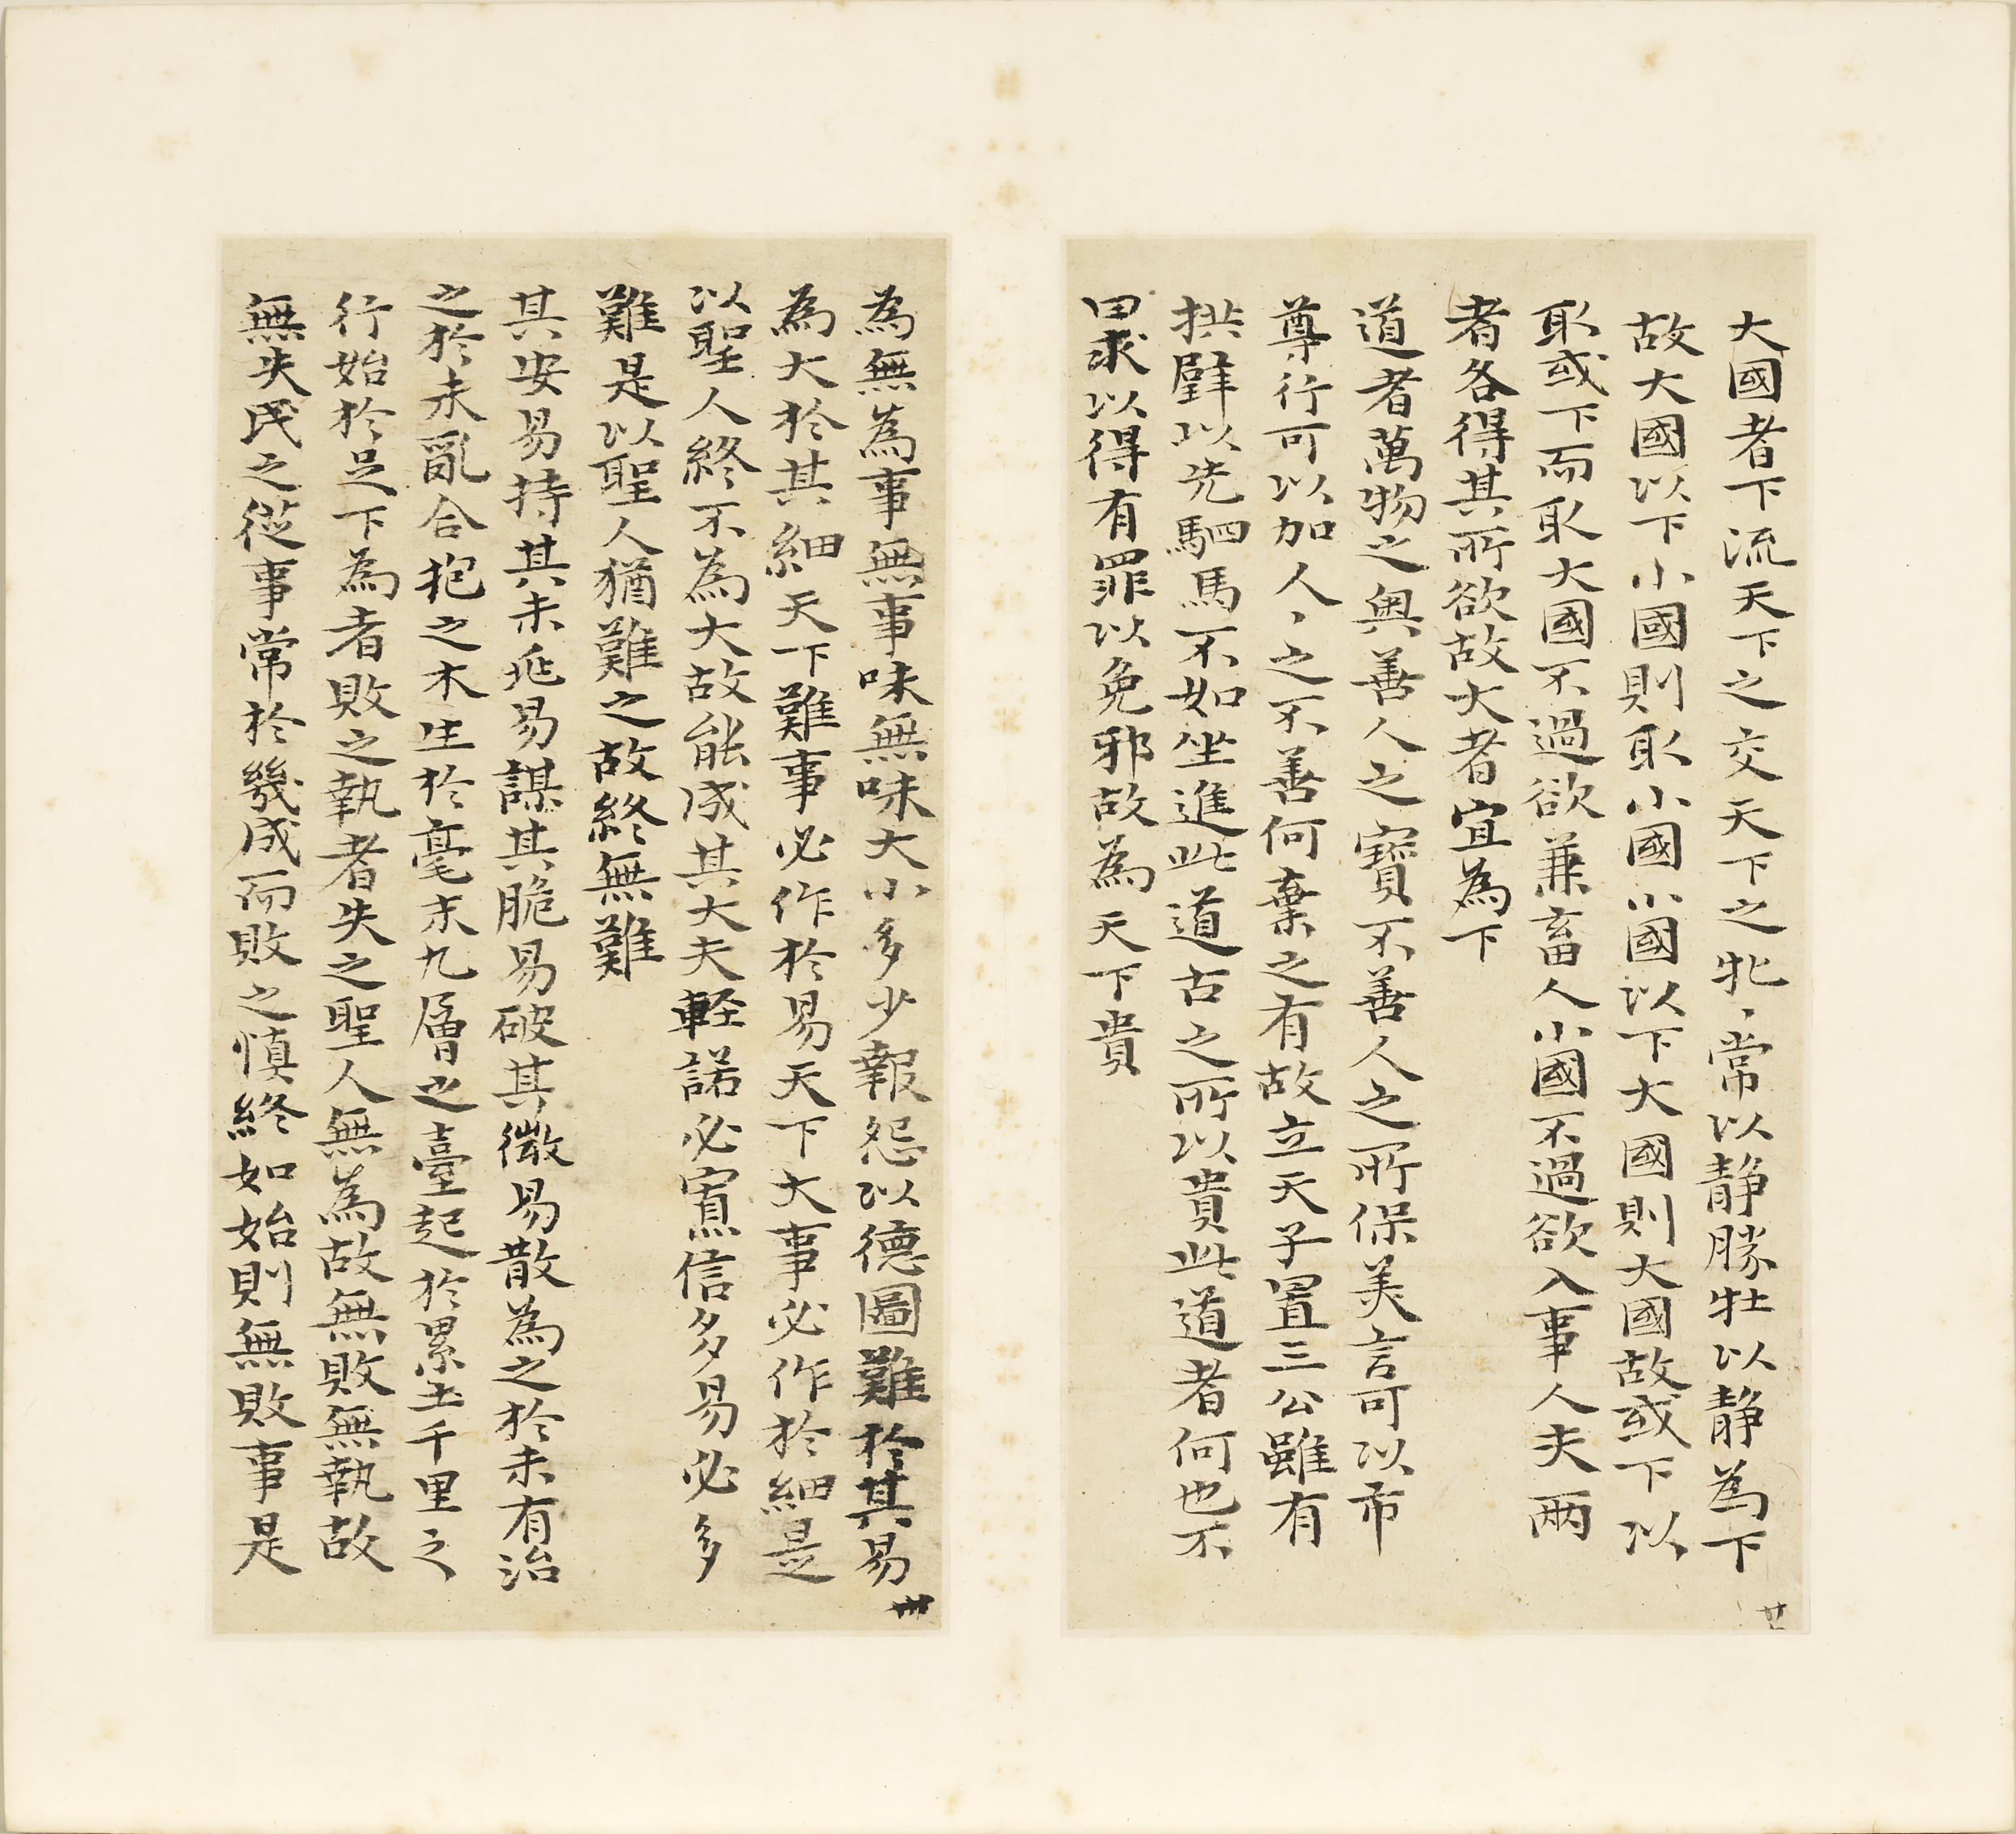 大國者下流天下之交天下之牝、常以静勝牡以静為下
故大國以下小國則取小國小國以下大國則大國故或下以
取或下而取大國不過欲兼畜人小國不過欲入事人夫兩
者各得其所欲故大者宜為下
道者萬物之奥善人之寶不善人之所保美言可以市
尊行可以加人、之不善何棄之有故立天子置三公雖有
拱璧以先駟馬不如坐進此道古之所以貴此道者何也不
曰求以得有罪以免邪故為天下貴
廿
為無為事無事味無味大小多少報怨以德圖難於其易
為大於其細天下難事必作於易天下大事必作於細是
以聖人終不為大故能成其大夫軽諾必寡信多易必多
難是以聖人猶難之故終無難
其安易持其未兆易謀其脆易破其微易散為之於未有治
之於未亂合抱之木生於毫末九層之臺起於累土千里之
行始於足下為者敗之執者失之聖人無為故無敗無執故
無失民之從事常於幾成而敗之慎終如始則無敗事是
卅